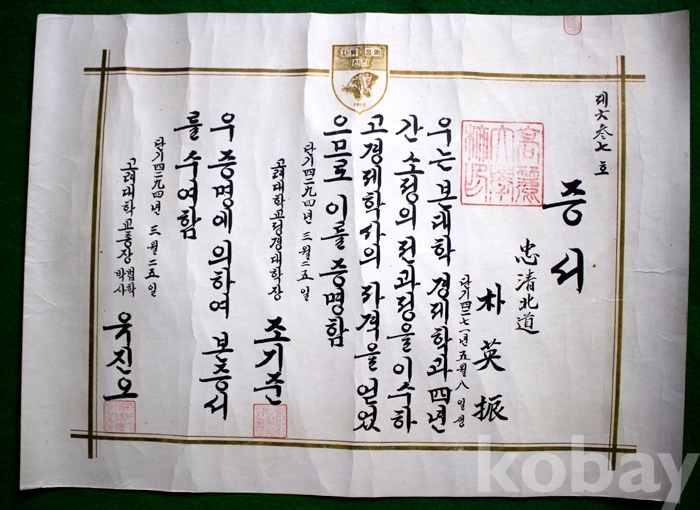 제六叁七호
증서
忠清北道
朴英振
단기四二七一년五월八일생
우는 본대학 경제학과 四년
간 소정의 전과정을 이수하
고 경제학사의 자격을 얻었
으므로 이를 증명함
단기四二九四년 三월二五일
고려대학교정경대학장
조기준
우 증명에 의하여 본증서
를 수여함
단기四二九四년 三월二五일
고려대학교총장 법학박사
유진오
자유 정의 진리
1905
kobay